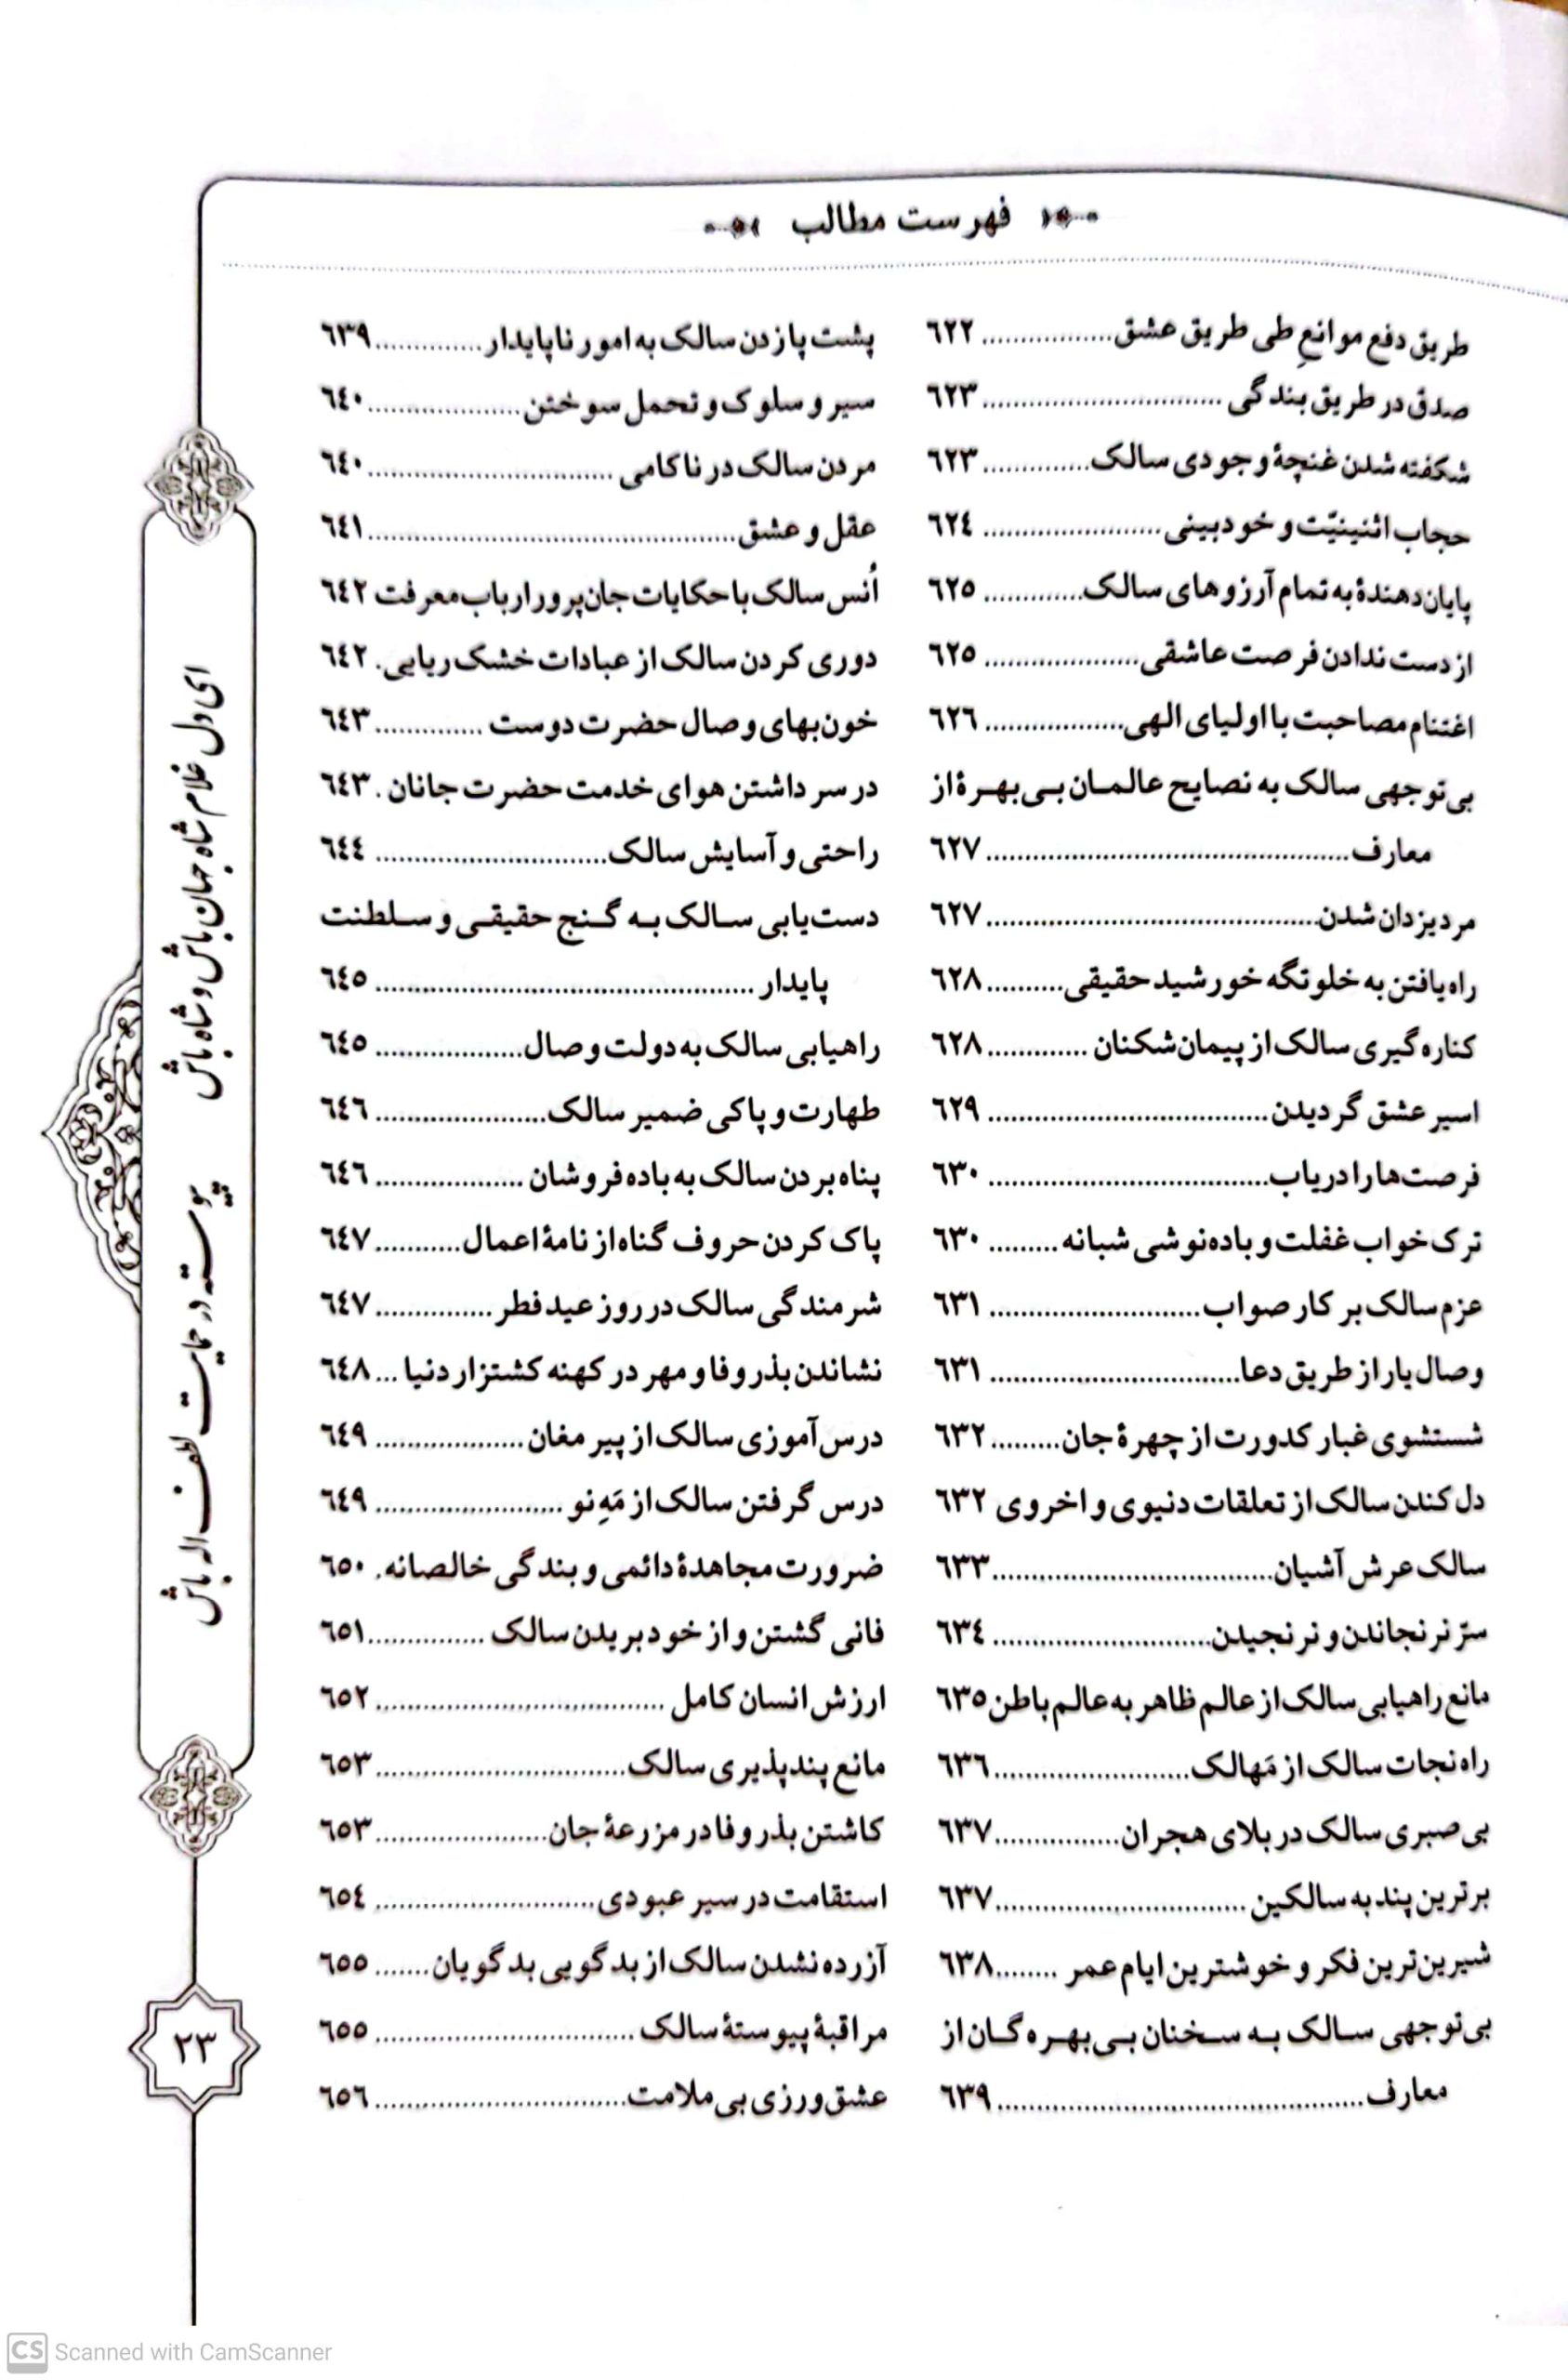 فهرست مطالب
طریق دفع موانعِ طی طریق عشق................. ٦٢٢
صدق در طریق بندگی ............................... ٦٢٣
شکفته شدن غنچهٔ وجودی سالک.............. ٦٢٣
حجاب اثنینیّت و خودبینی ....................... ٦٢٤
پایان‌دهندهٔ به تمام آرزوهای سالک............. ٦٢٥
از دست ندادن فرصت عاشقی.................... ٦٢٥
اغتنام مصاحبت با اولیای الهی.................. ٦٢٦
بی‌توجهی سالک به نصایح عالمان بی‌بهرهٔ از
معارف................................................ ٦٢٧
مرد یزدان شدن............................................ ٦٢٧
راه یافتن به خلوتگه خورشید حقیقی.......... ٦٢٨
کناره‌گیری سالک از پیمان‌شکنان ............. ٦٢٨
اسیر عشق گردیدن.................................... ٦٢٩
فرصت‌ها را دریاب..................................... ٦٣٠
ترک خواب غفلت و باده‌نوشی شبانه ......... ٦٣٠
عزم سالک بر کار صواب........................... ٦٣١
وصال یار از طریق دعا................................ ٦٣١
شستشوی غبار کدورت از چهرهٔ جان......... ٦٣٢
دل کندن سالک از تعلقات دنیوی و اخروی ٦٣٢
سالک عرش آشیان.................................... ٦٣٣
سرّ نرنجاندن و نرنجیدن............................ ٦٣٤
مانع راهیابی سالک از عالم ظاهر به عالم باطن ٦٣٥
راه نجات سالک از مَهالک......................... ٦٣٦
بی‌صبری سالک در بلای هجران................ ٦٣٧
برترین پند به سالکین ................................ ٦٣٧
شیرین‌ترین فکر و خوشترین ایام عمر ........ ٦٣٨
بی‌توجهی سالک به سخنان بی‌بهره‌گان از
معارف................................................ ٦٣٩
پشت پا زدن سالک به امور ناپایدار.............. ٦٣٩
سیر و سلوک و تحمل سوختن.................... ٦٤٠
مردن سالک در ناکامی ................................ ٦٤٠
عقل و عشق................................................ ٦٤١
اُنس سالک با حکایات جان‌پرور ارباب معرفت ٦٤٢
دوری کردن سالک از عبادات خشک ریایی. ٦٤٢
خون‌بهای وصال حضرت دوست .............. ٦٤٣
در سر داشتن هوای خدمت حضرت جانان . ٦٤٣
راحتی و آسایش سالک.............................. ٦٤٤
دست‌یابی سالک به گنج حقیقی و سلطنت
پایدار ................................................. ٦٤٥
راهیابی سالک به دولت وصال................... ٦٤٥
طهارت و پاکی ضمیر سالک...................... ٦٤٦
پناه بردن سالک به باده‌فروشان ................... ٦٤٦
پاک کردن حروف گناه از نامهٔ اعمال........... ٦٤٧
شرمندگی سالک در روز عید فطر ............... ٦٤٧
نشاندن بذر وفا و مهر در کهنه کشتزار دنیا ... ٦٤٨
درس‌آموزی سالک از پیر مغان ................... ٦٤٩
درس گرفتن سالک از مَهِ نو ........................ ٦٤٩
ضرورت مجاهدهٔ دائمی و بندگی خالصانه. ٦٥٠
فانی گشتن و از خود بریدن سالک ............... ٦٥١
ارزش انسان کامل ..................................... ٦٥٢
مانع پندپذیری سالک................................ ٦٥٣
کاشتن بذر وفا در مزرعهٔ جان...................... ٦٥٣
استقامت در سیر عبودی............................ ٦٥٤
آزرده نشدن سالک از بدگویی بدگویان....... ٦٥٥
مراقبهٔ پیوستهٔ سالک ................................. ٦٥٥
عشق‌ورزی بی‌ملامت................................ ٦٥٦
ای دل غلام شاه جهان باش و شاه باش
پیوسته در حمایت لطف اله باش
٢٣
CS Scanned with CamScanner